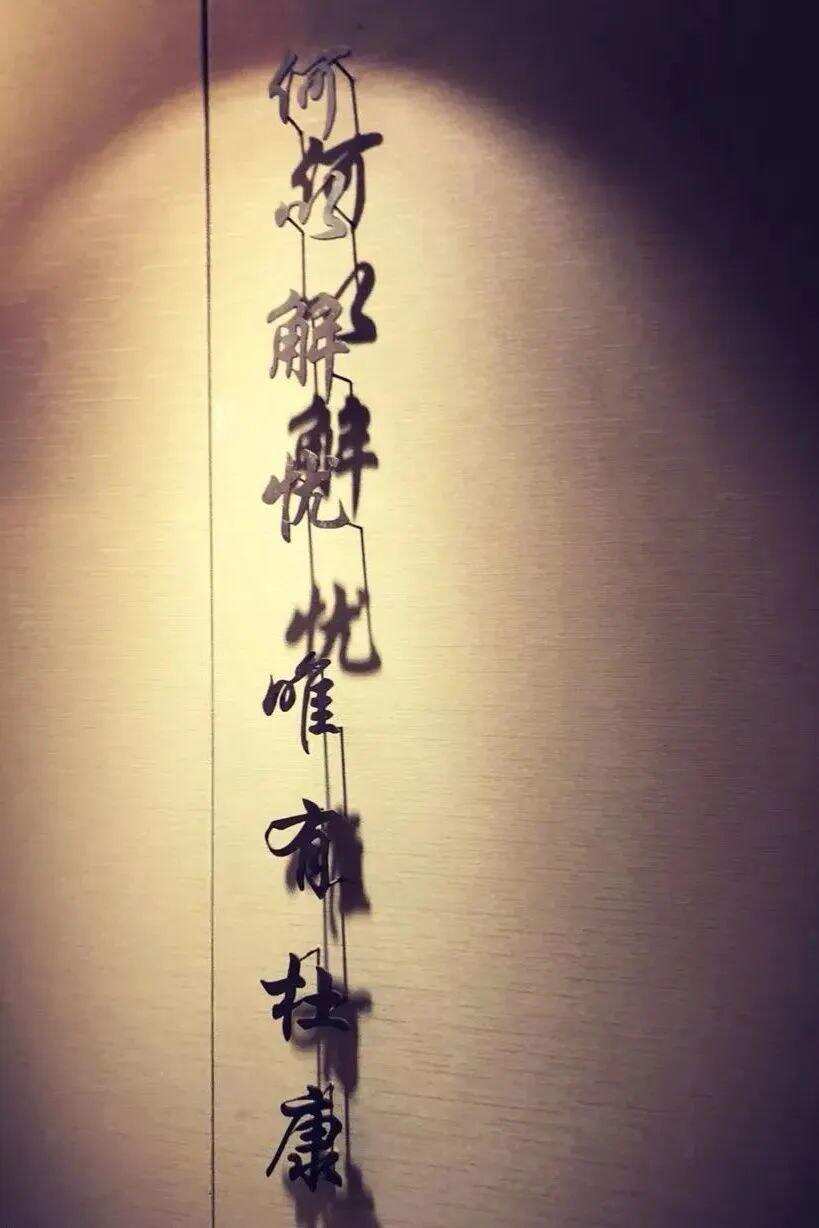 何以解忧唯有杜康